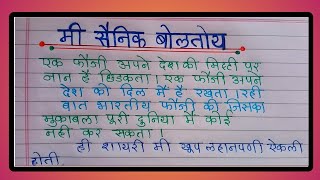 मी सैनिक बोलतोय
एक फौजी अपने देश की मिट्टी पर
जान है छिडकता। एक फौजी अपने
देश को दिल मे है रखता। रही
बात भारतीय फौजी की जिसका
मुकाबला पूरी दुनिया मे कोई
नही कर सकता।
ही शायरी मी खूप लहानपणी ऐकली
होती.